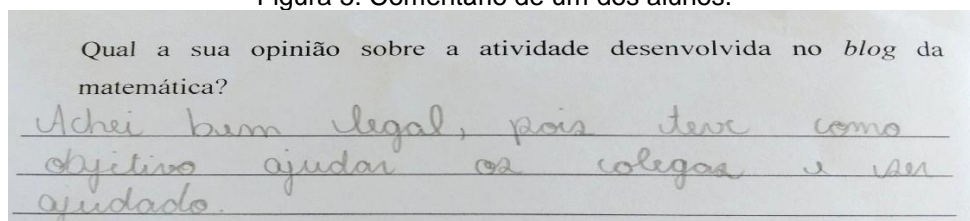 Figura 3. Comentário de um dos alunos.
Qual a sua opinião sobre a atividade desenvolvida no blog da
matemática?
Achei bem legal, pois teve como
objetivo ajudar os colegas e ser
ajudado.